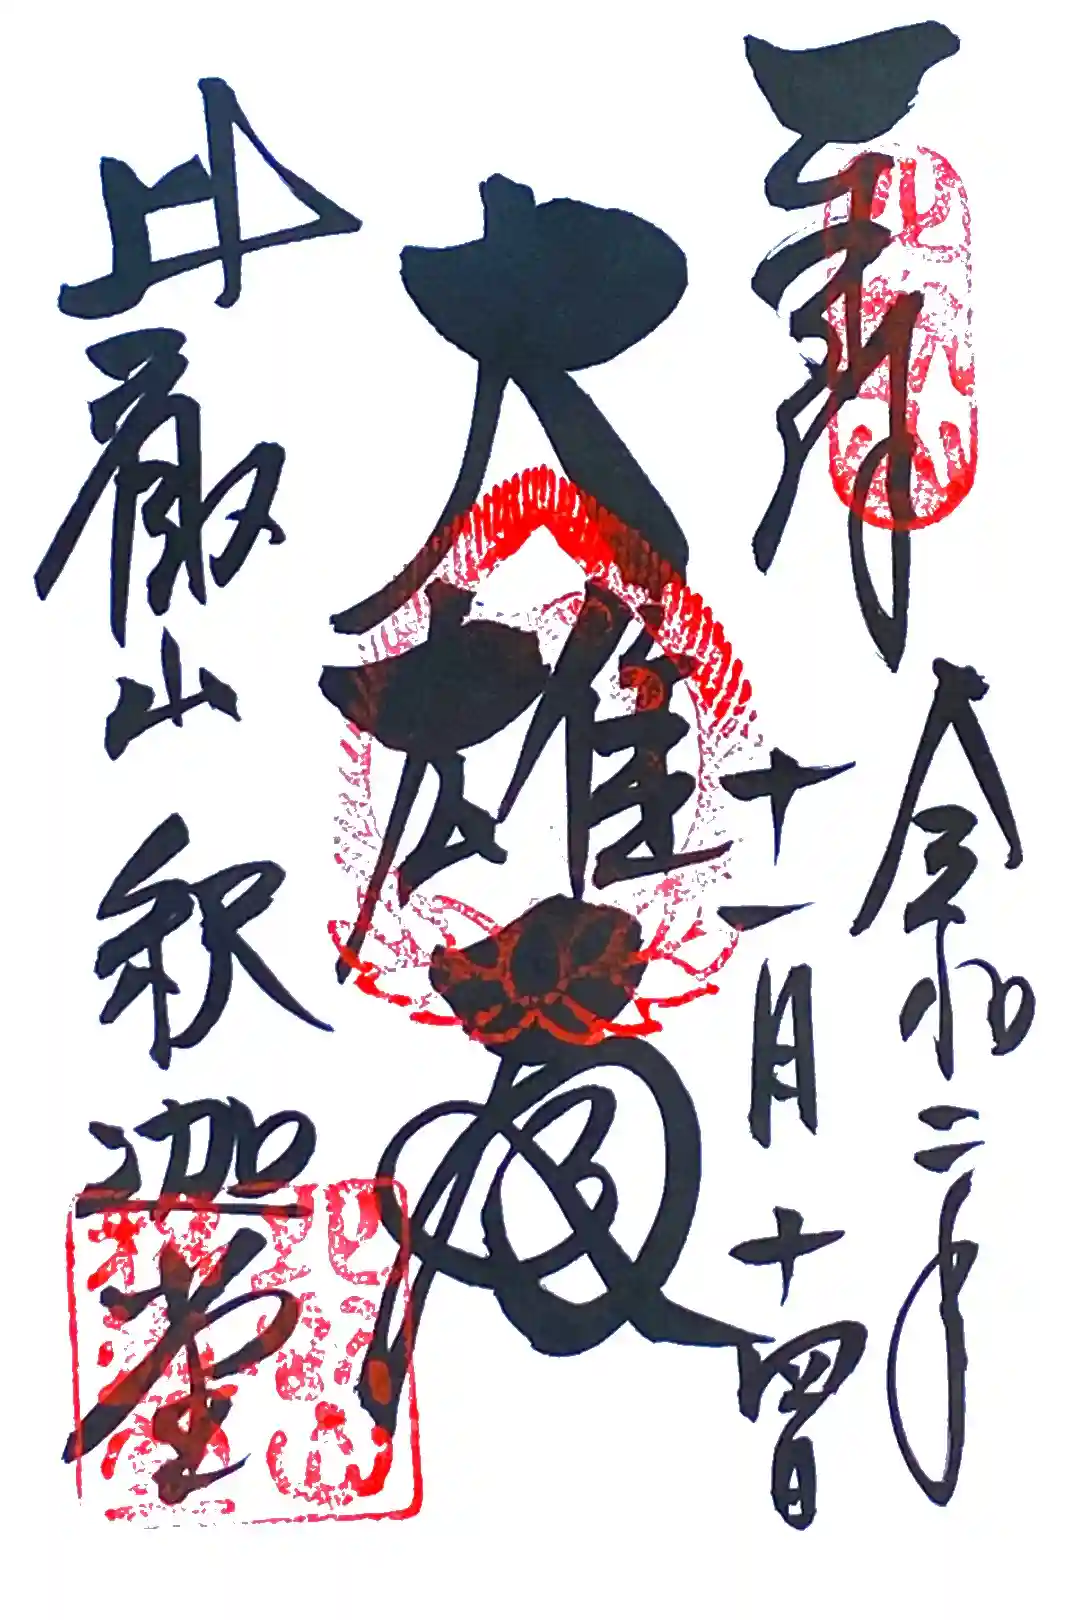 奉拝
令和二年
十一月十四日
大雄殿
比叡山 釈迦堂